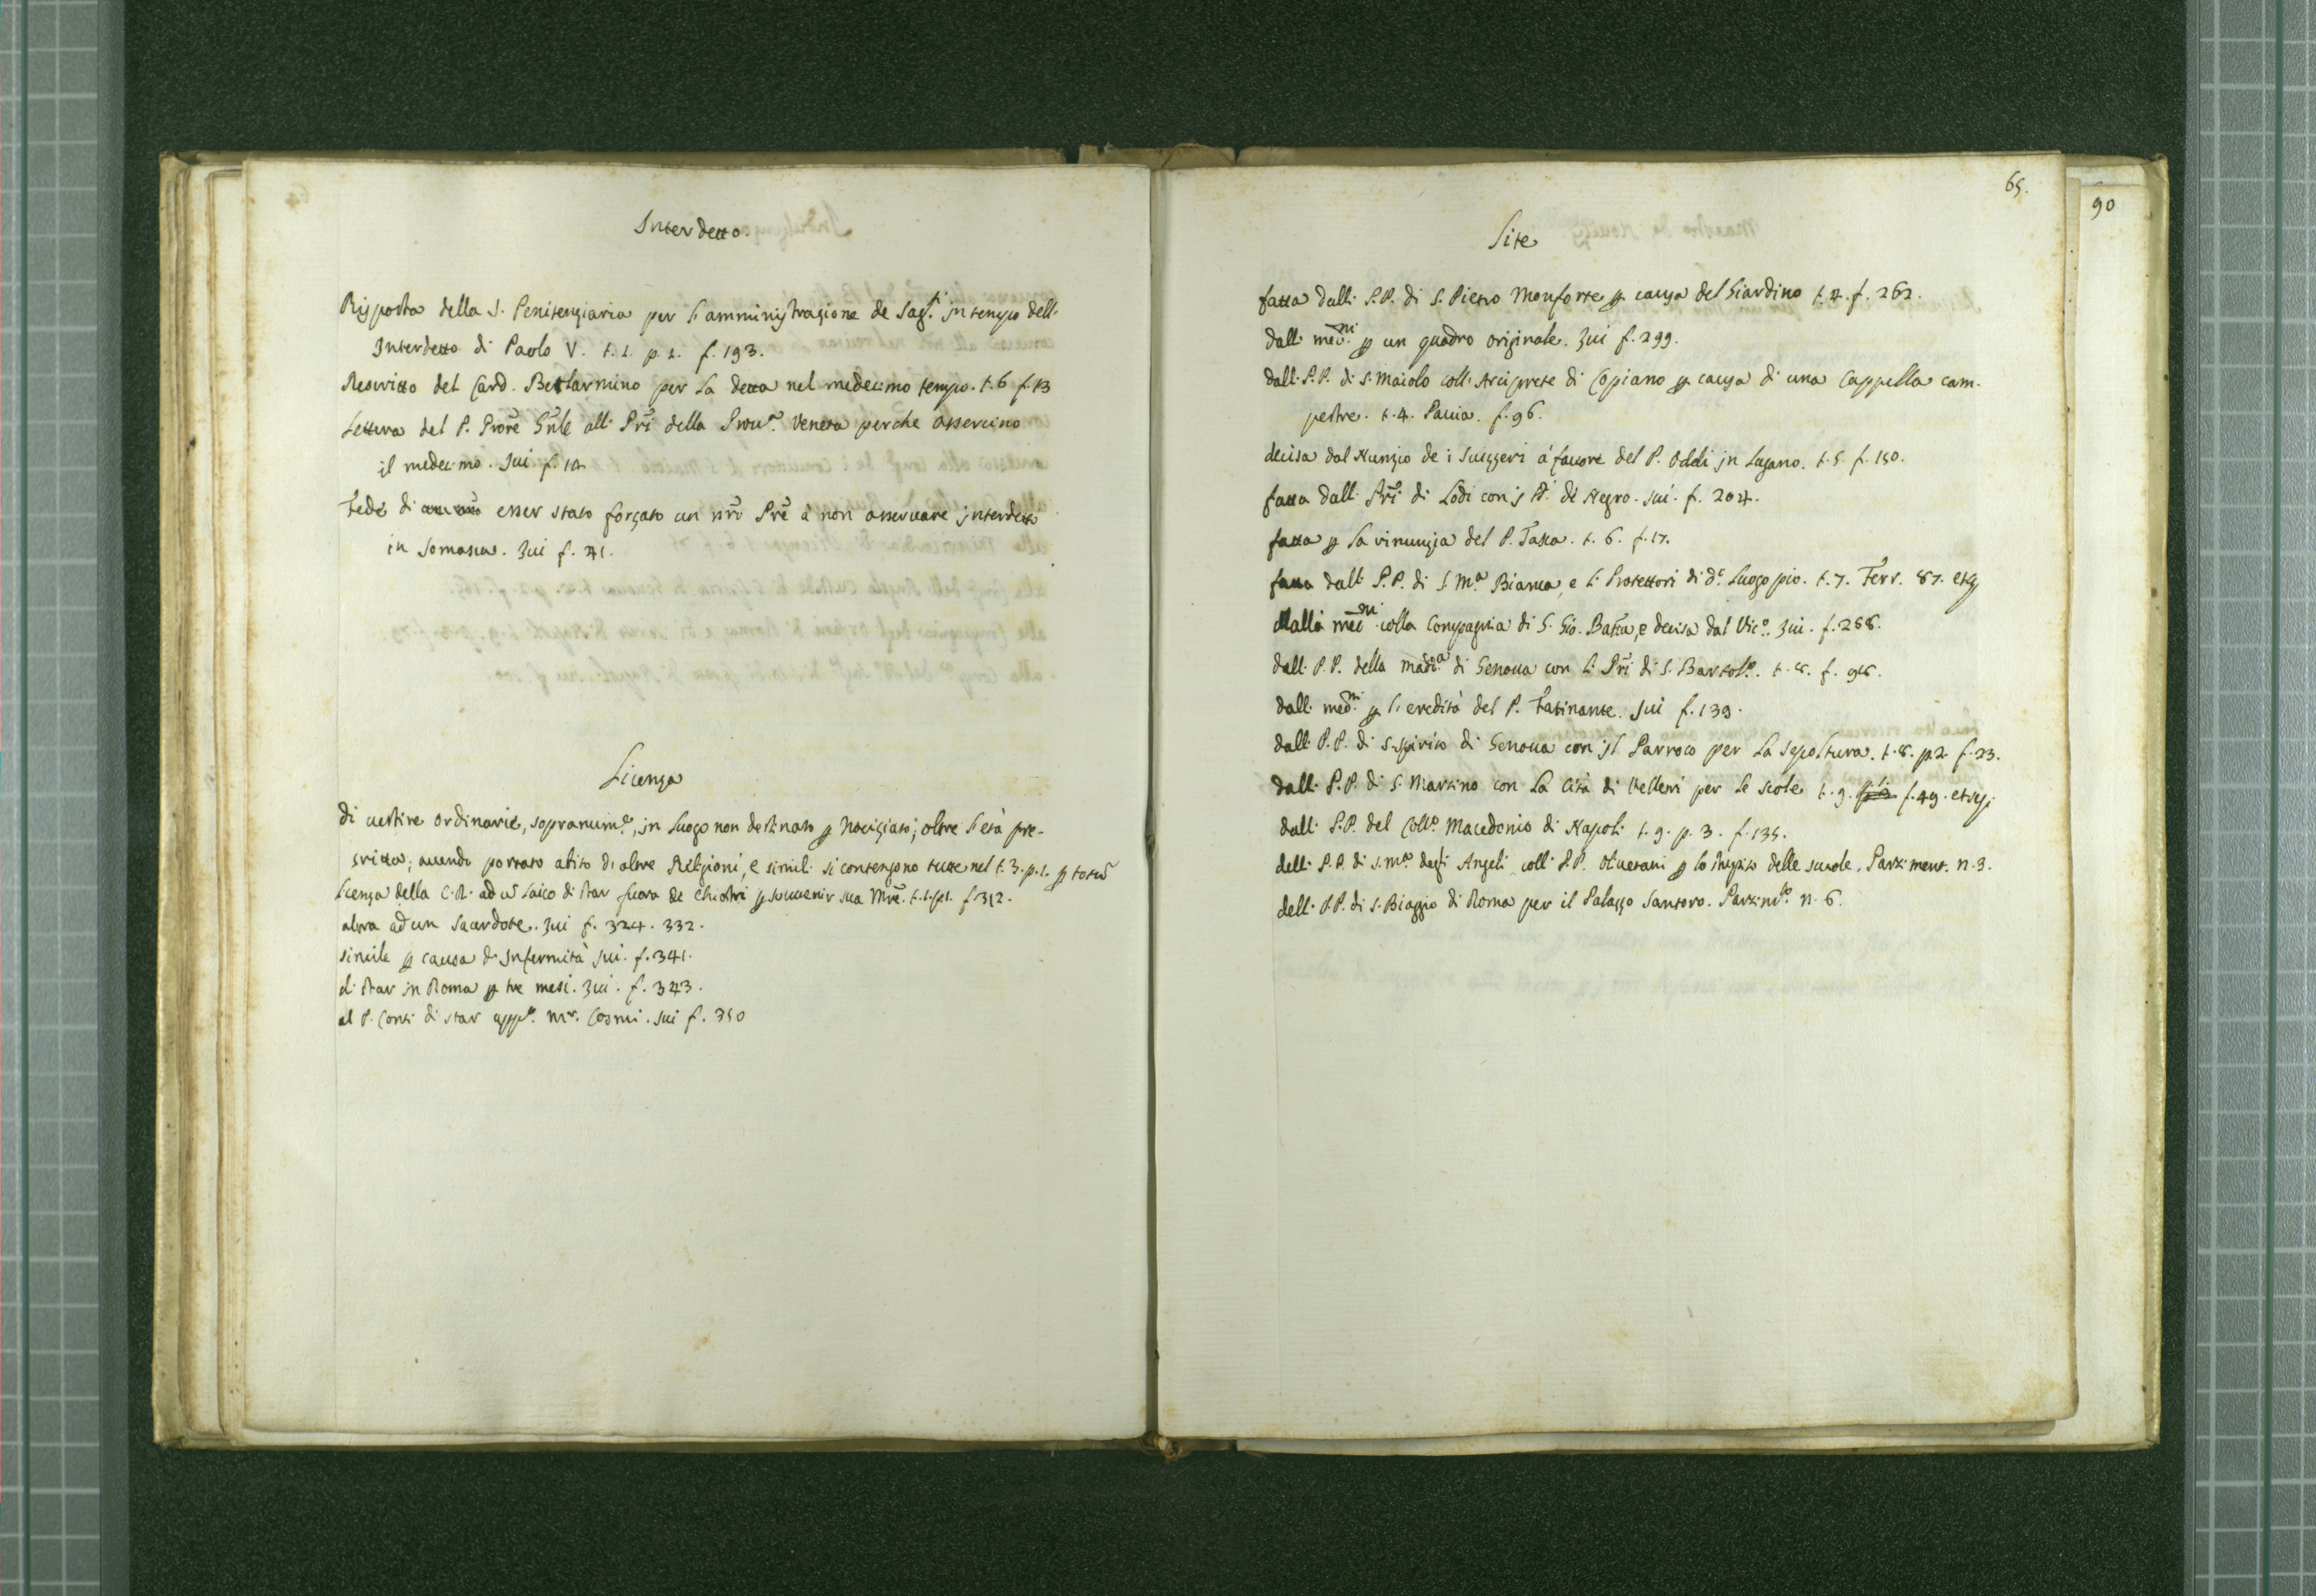 Interdetto.
Risposta della S. Penitenziaria per l'amministrazione de Sag.ti in tempo dell'
Interdetto di Paolo V. t. 1. p. 1. f. 193.
Rescritto del Card. Bellarmino per la detta nel medecimo tempo. t. 6 f. 13
Lettera del P. Prore Gñle all: Pri della Prou.a Veneta perche osseruino
il medecimo. Iui f. 14
Fede di esser stato forzato un nro Pre à non osseruare interdetto
in Somasca. Iui f. 41.
Licenza
di uestire ordinarie, sopranum.e, in Luogo non destinato p Nouiziato; oltre l'età pre-
scritta; auendo portato abito di altre Religioni, e simili si contengono tutte nel t. 3. p. 1. p totũ
Licenza della C. R. ad ũ Laico di star fuora de Chiostri p souuenir sua Mre. t. 1. p1. f. 312.
altra ad un Sacerdote. Iui f. 324. 332.
simile p causa d' Infermità Iui. f. 341.
di star in Roma p tre mesi. Iui. f. 343.
al P. Conti di star app.o Mr. Cosmi. Iui f. 350
65.
90
Lite
fatta dalli P.P. di S. Pietro Monforte p causa del Giardino t. 4. f. 262.
dalli med.mi p un quadro originale. Iui f. 299.
dalli P.P. di S. Maiolo coll' Arciprete di Copiano p causa di una Cappella cam-
pestre. t. 4. Pauia. f. 96.
decisa dal Nunzio de i Suizzeri á fauore del P. Oddi in Lugano. t. 5. f. 150.
fatta dalli Pri di Lodi con i di Negro. Iui. f. 204.
fatta p la rinunzia del P. Tassa. t. 6. f. 17.
fatta dalli P.P. di S. M.a Bianca, e li Protettori di d.o Luogo pio. t. 7. Ferr. 87. et
Dalli med.mi colla Compagnia di S. Gio. Batta, e decisa dal Vic.o Iui. f. 288.
dalli P.P. della Madd.a di Genoua con li Pri di S. Bartol.o. t. 8. f. 98.
dalli med.mi p l'eredità del P. Fatinante. Iui f. 139.
dalli P.P. di S. Spirito di Genoua con il Parroco per la sepoltura. t. 8. p. 2. f. 23.
dalli P.P. di S. Martino con la Cità di Velletri per le scole t. 9. f. 49. et
dalli P.P. del Coll.o Macedonio di Napoli t. 9. p. 3. f. 135.
delli P.P. di S. M.a degli Angeli colli P.P. Oliuetani p lo strepito delle scuole. Parziment. n. 3.
delli P.P. di S. Biaggio di Roma per il Palazzo Santoro. Parzim.to n. 6.